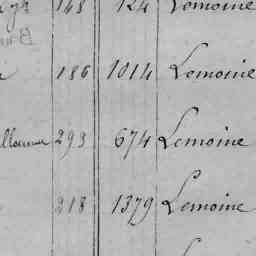 148 124 Lemoine
186 1014 Lemoine
293 674 Lemoine
218 1379 Lemoine